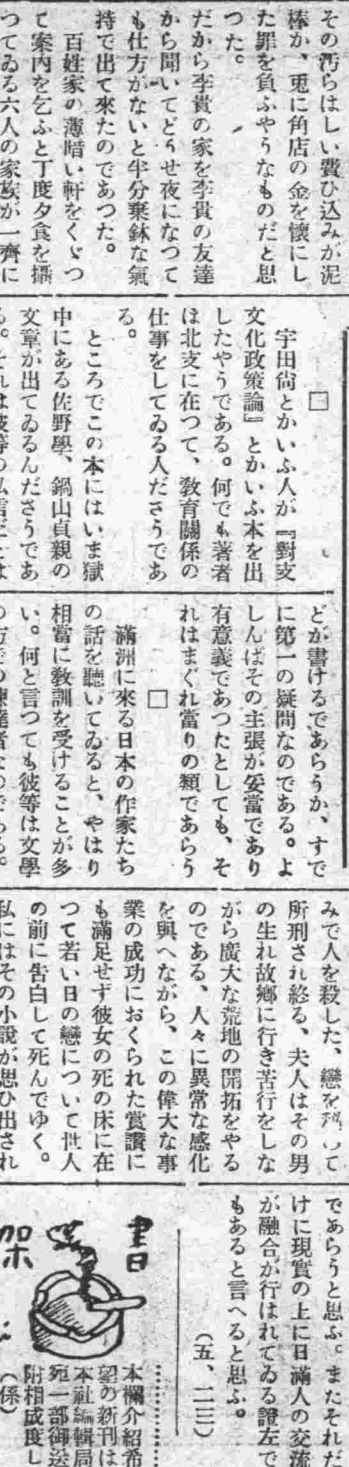 その汚らはしい費ひ込みが泥
棒か、兎に角店の金を懷にし
た罪を負ふやうなものだと思
つた。
だから李貴の家を李貴の友達
から聞いてどうせ夜になつて
も仕方がないと半分棄鉢な氣
持で出て來たのであつた。
百姓家の薄暗い軒をくゞつ
て案内を乞ふと丁度夕食を攝
つてゐる六人の家族が一齊に
□
宇田尙とかいふ人が『對支
文化政策論』とかいふ本を出
したやうである。何でも著者
は北支に在つて、敎育關係の
仕事をしてゐる人ださうであ
る。
ところでこの本にはいま獄
中にある佐野學、鍋山貞親の
文章が出てゐるんださうであ
る。それは彼等の私言だとは
どが書けるであらうか、すで
に第一の疑問なのである。よ
しんばその主張が妥當であり
有意義であつたとしても、そ
れはまぐれ當りの類であらう
□
滿洲に來る日本の作家たち
の話を聽いてゐると、やはり
相當に敎訓を受けることが多
い。何と言つても彼等は文學
の方での練達者なのである。
みで人を殺した、戀を
所刑され終る、夫人はその男
の生れ故鄕に行き苦行をしな
がら廣大な荒地の開拓をやる
のである、人々に異常な感化
を與へながら、この偉大な事
業の成功におくられた賞讚に
も滿足せず彼女の死の床に在
つて若い日の戀について世人
の前に告白して死んでゆく。
私にはその小說が思ひ出され
であらうと思ふ。またそれだ
けに現實の上に日滿人の交流
が融合が行はれてゐる證左で
もあると言へると思ふ。
（五、二三）
書架
本欄介紹希
望の新刊は
本社編輯局
宛一部御送
附相成度し
（係）